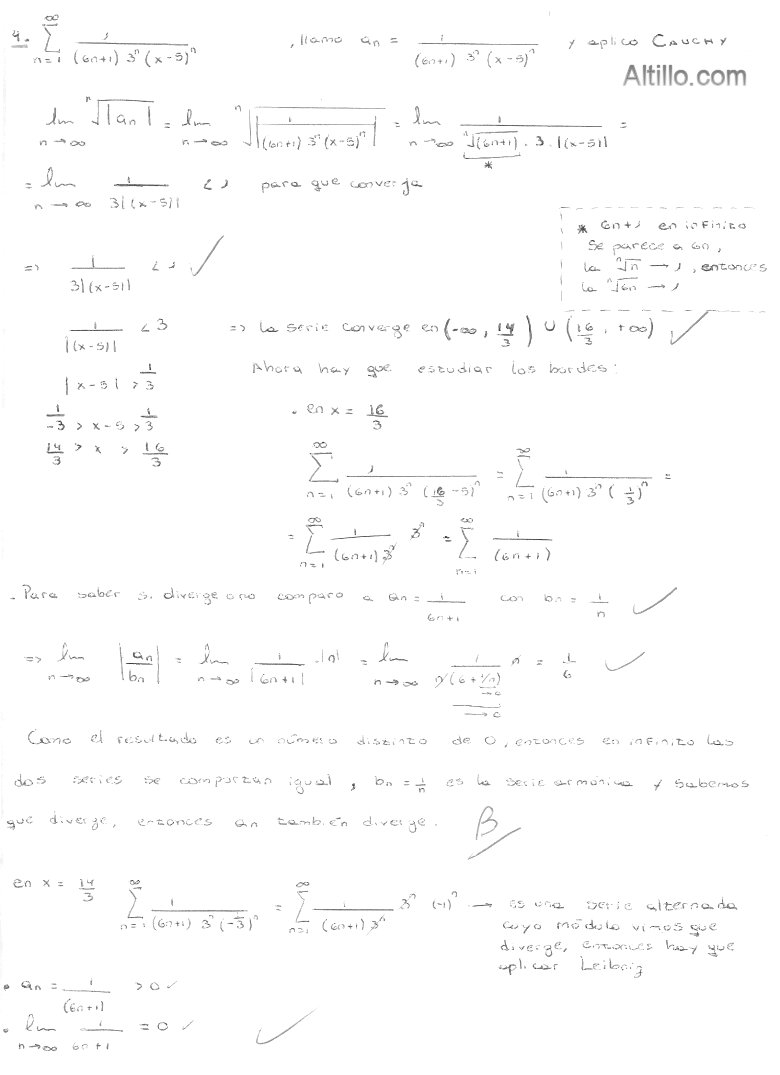 4. ∞∑n=1 1/((6n+1) 3^n (x-5)^n) , llamo an = 1/((6n+1) 3^n (x-5)^n) y aplico CAUCHY
Altillo.com
lim n→∞ ⁿ√|an| = lim n→∞ ⁿ√|1/((6n+1) 3^n (x-5)^n)| = lim n→∞ 1/(ⁿ√(6n+1) . 3 . |(x-5)|) =
*
= lim n→∞ 1/(3|(x-5)|) < 1 para que converja
* 6n+1 en infinito
se parece a 6n,
la ⁿ√n → 1, entonces
la ⁿ√6n → 1
=> 1/(3|(x-5)|) < 1 ✓
1/|(x-5)| < 3 => la serie converge en (-∞, 14/3) ∪ (16/3, +∞) ✓
|x-5| > 1/3
1/-3 > x-5 > 1/3
14/3 > x > 16/3
Ahora hay que estudiar los bordes:
. en x = 16/3
∞∑n=1 1/((6n+1) 3^n (16/3 -5)^n) = ∞∑n=1 1/((6n+1) 3^n (1/3)^n) =
= ∞∑n=1 1/((6n+1) 3^n) 3^n = ∞∑n=1 1/(6n+1)
. Para saber si diverge o no comparo a an = 1/(6n+1) con bn = 1/n ✓
=> lim n→∞ |an/bn| = lim n→∞ 1/|6n+1| . |n| = lim n→∞ 1/(n(6+1/n)) n = 1/6 ✓
→0
→0
Como el resultado es un número distinto de 0, entonces en infinito las
dos series se comportan igual, bn = 1/n es la serie armónica y sabemos
que diverge, entonces an también diverge. B
en x = 14/3 ∞∑n=1 1/((6n+1) 3^n (-1/3)^n) = ∞∑n=1 1/((6n+1) 3^n) 3^n (-1)^n → es una serie alternada
cuyo módulo vimos que
diverge, entonces hay que
aplicar Leibniz
. an = 1/(6n+1) > 0 ✓
. lim n→∞ 1/(6n+1) = 0 ✓ ✓